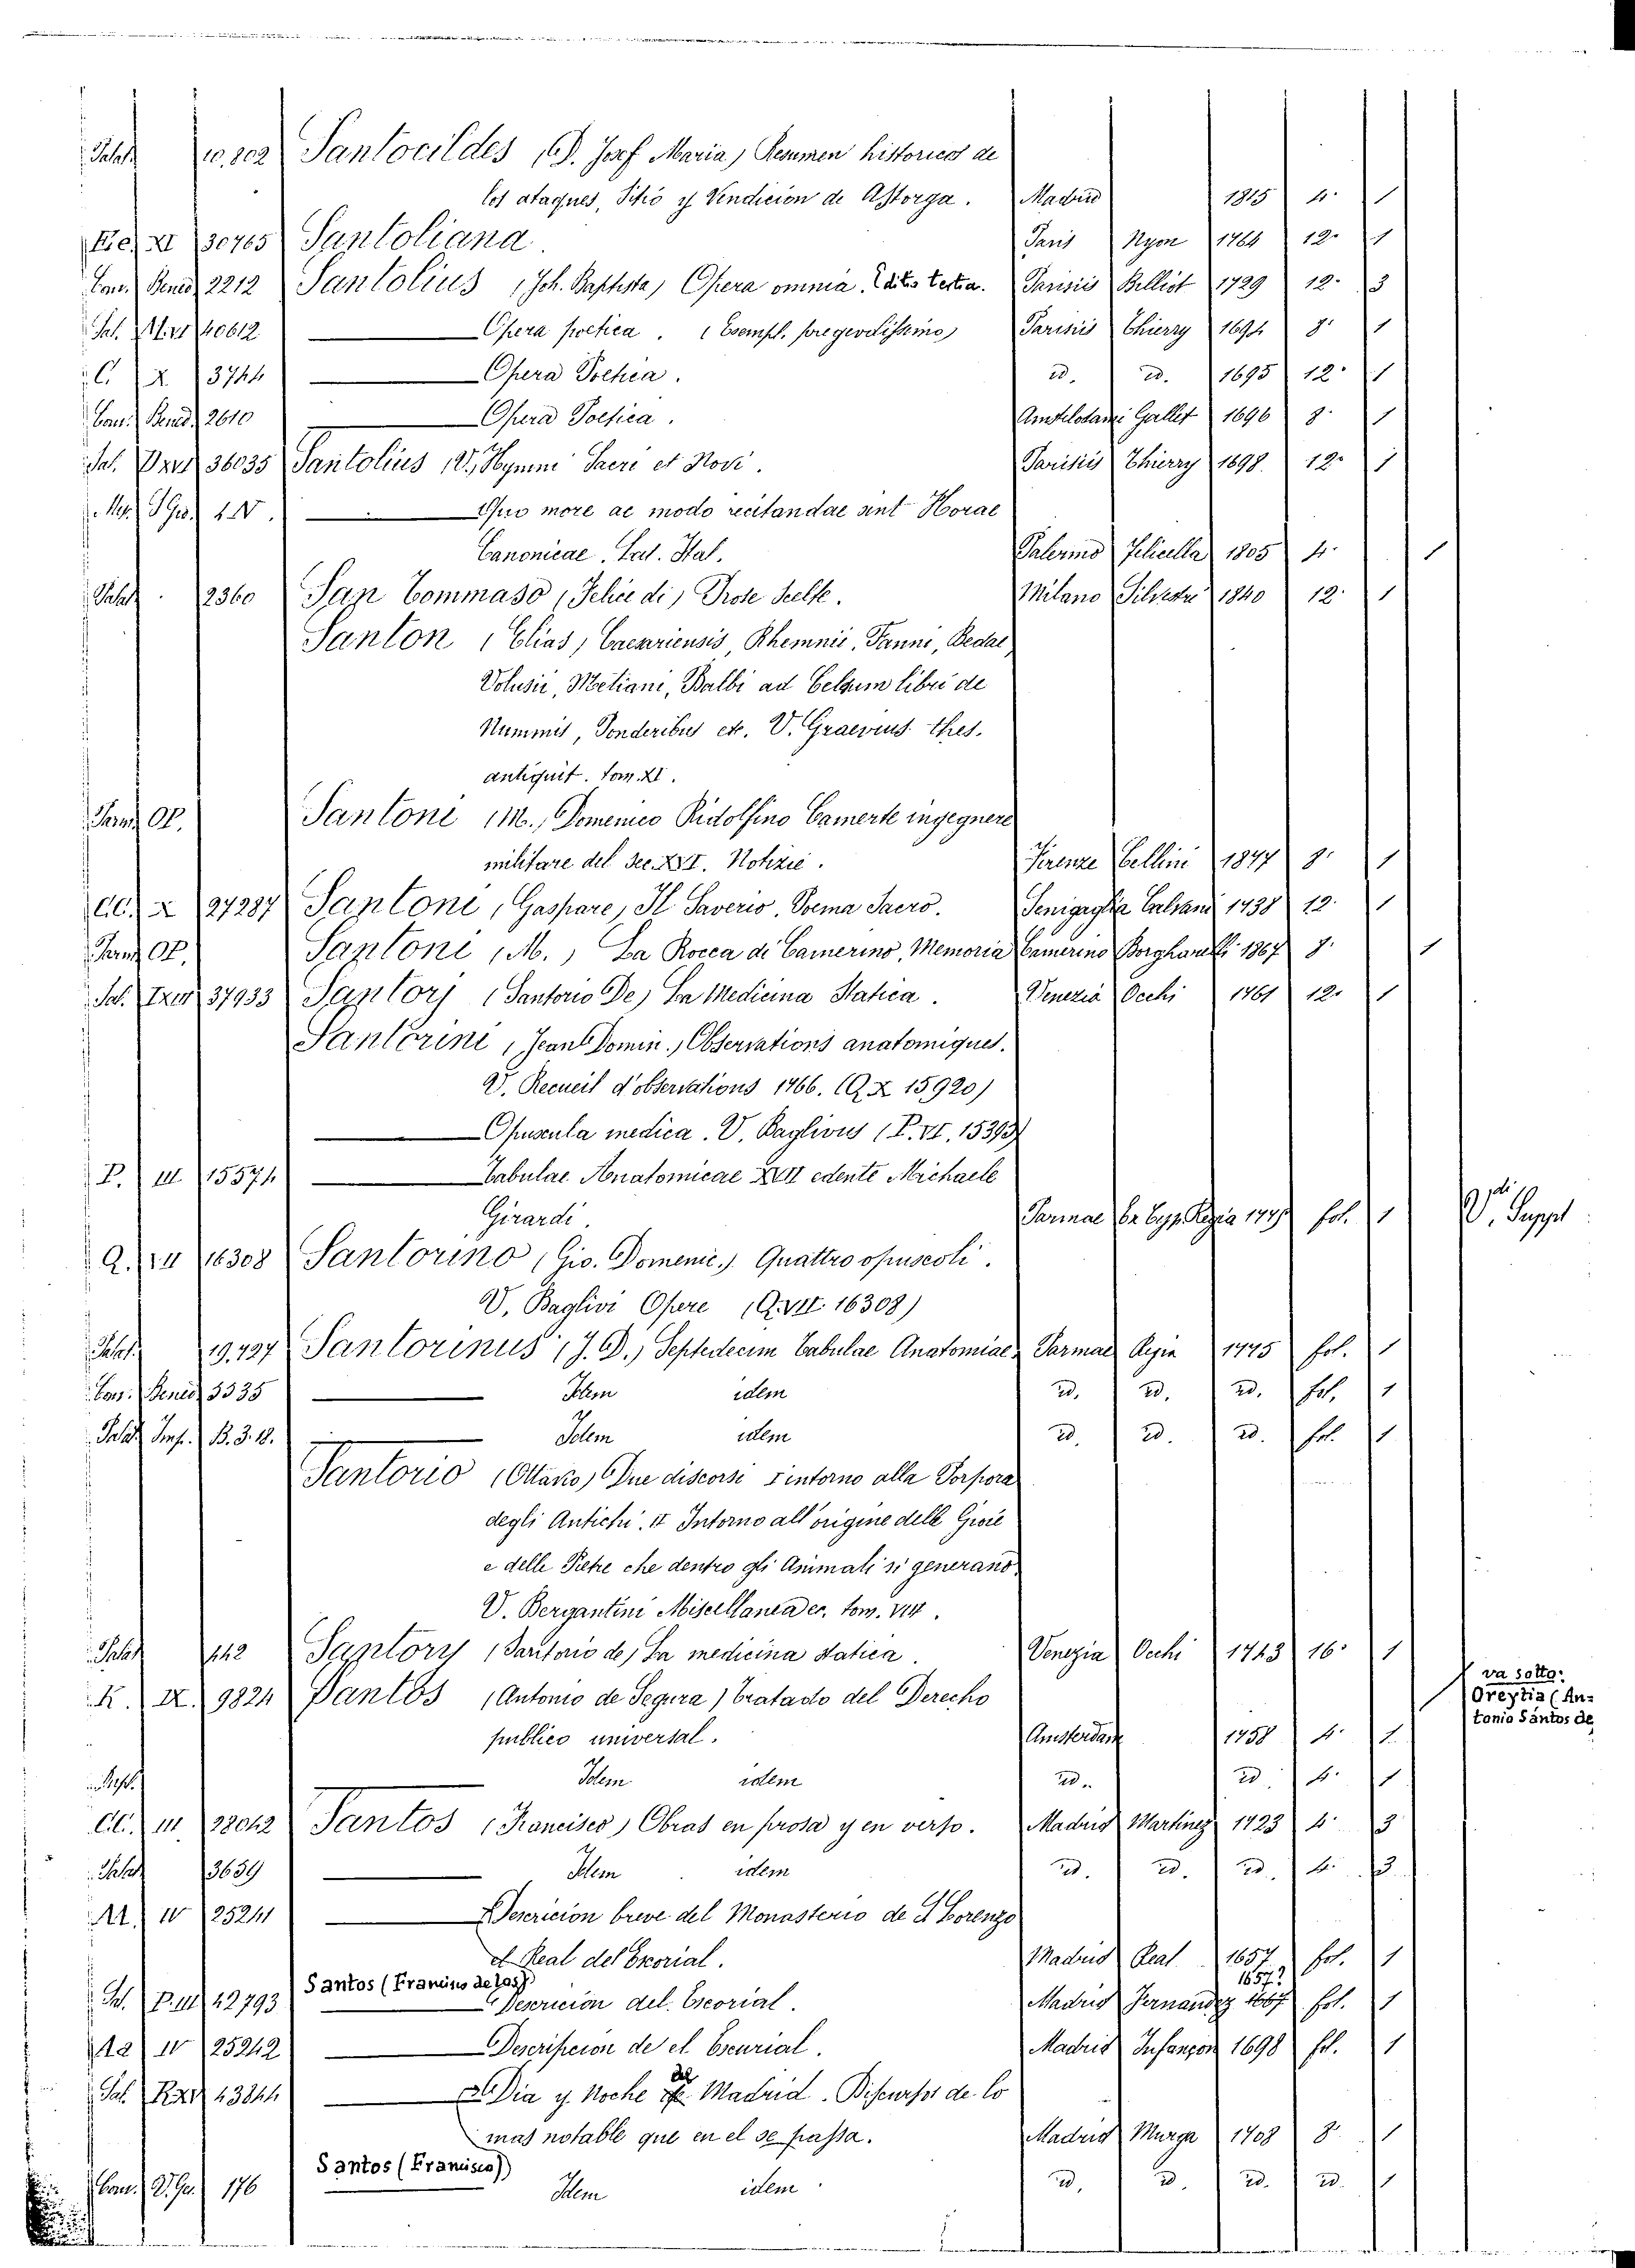 Palat. 10.802 Santocildes (D. Josef Maria) Resumen historicos de
los ataques, Sitio y Rendicion de Astorga. Madrid 1815 4. 1
XI 30765 Santoliana. Paris Nyon 1764 12. 1
Con. Bened. 2212 Santolius (Joh. Baptista) Opera omnia. Editio tertia. Parisiis Billiot 1729 12. 3
Sal. 40612 Opera poetica. (Esempl. pregevolissimo) Parisiis Thierry 1694 8. 1
C. X. 3744 Opera Poetica. id. id. 1695 12. 1
Con. Bened. 2610 Opera Poetica. Amstelodami Gallet 1696 8. 1
Sal. 36035 Santolius (V.) Hymni Sacri et Novi. Parisiis Thierry 1698. 12. 1
Quo more ac modo recitandae sint Horae
Canonicae. Lat. Ital. Palermo Felicella 1805 4. 1
Palat. 2360 San Tommaso (Felice di) Prose Scelte. Milano Silvestri 1840 12. 1
Santon (Elias) Caesariensis, Rhemnii, Fanni, Bedae,
Volusii, Metiani, Balbi ad Celsum libri de
Nummis, Ponderibus etc. V. Graevius thes.
antiquit. tom. XI.
Santoni (M.) Domenico Ridolfino Camerte ingegnere
militare del Sec. XVI. Notizie. Firenze Cellini 1877 8. 1
CC. X 27287 Santoni (Gaspare) Il Saverio. Poema Sacro. Senigaglia Calvani 1738 12. 1
Santoni (M.) La Rocca di Camerino, Memoria Camerino Borgharelli 1867 8. 1
Sal. 37933 Santorj (Santorio De) La Medicina Statica. Venezia Occhi 1761 12. 1
Santorini (Jean Domin.) Observations anatomiques.
V. Recueil d'observations 1766. (Q. X 15920)
Opuscula medica. V. Baglivus (P. VI. 15393)
P. III 15571 Tabulae Anatomicae XVII edente Michaele
Girardi. Parmae Ex Typ. Regia 1775 fol. 1 V. Suppl
Q. VII 16308 Santorino (Gio. Domenic.) Quattro opuscoli.
V. Baglivi Opere (Q. VII. 16308)
Palat. 19.797 Santorinus (J. D.) Septedecim Tabulae Anatomiae, Parmae Regia 1775 fol. 1
Con. Bened. 3335 Idem idem id. id. id. fol. 1
Palat. Imp. B. 3. 18. Idem idem id. id. id. fol. 1
Santorio (Ottavio) Due discorsi I intorno alla Porpora
degli Antichi. II Intorno all'origine delle Gioie
e delle Pietre che dentro gli Animali si generano.
V. Bergantini Miscellanea ec. tom. VII.
Palat. 442 Santory (Santorio de) La medicina statica. Venezia Occhi 1743 16. 1
K. IX. 9824 Santos (Antonio de Segura) Tratado del Derecho va sotto: Oreytia (Antonio Santos de
publico universal. Amsterdam 1758 4. 1
Idem idem id. id 4. 1
CC. III 28042 Santos (Francisco) Obras en prosa y en verso. Madrid Martinez 1723 4. 3
Palat. 3639 Idem idem id. id. id. 4. 3
AA. IV 25241 Descricion breve del Monasterio de S. Lorenzo
el Real del Escorial. Madrid Real 1657. fol. 1
Sal. 42793 Santos (Francisco de los) Descricion del Escorial. Madrid Fernandez 1667 1657? fol. 1
Aa IV 25242 Descripcion de el Escurial. Madrid Infançon 1698 fl. 1
Sal. 43844 El Dia y Noche de Madrid. Discursos de lo
mas notable que en el se passa. Madrid Murga 1708 8. 1
176 Santos (Francisco) Idem idem id. id. id. id. 1